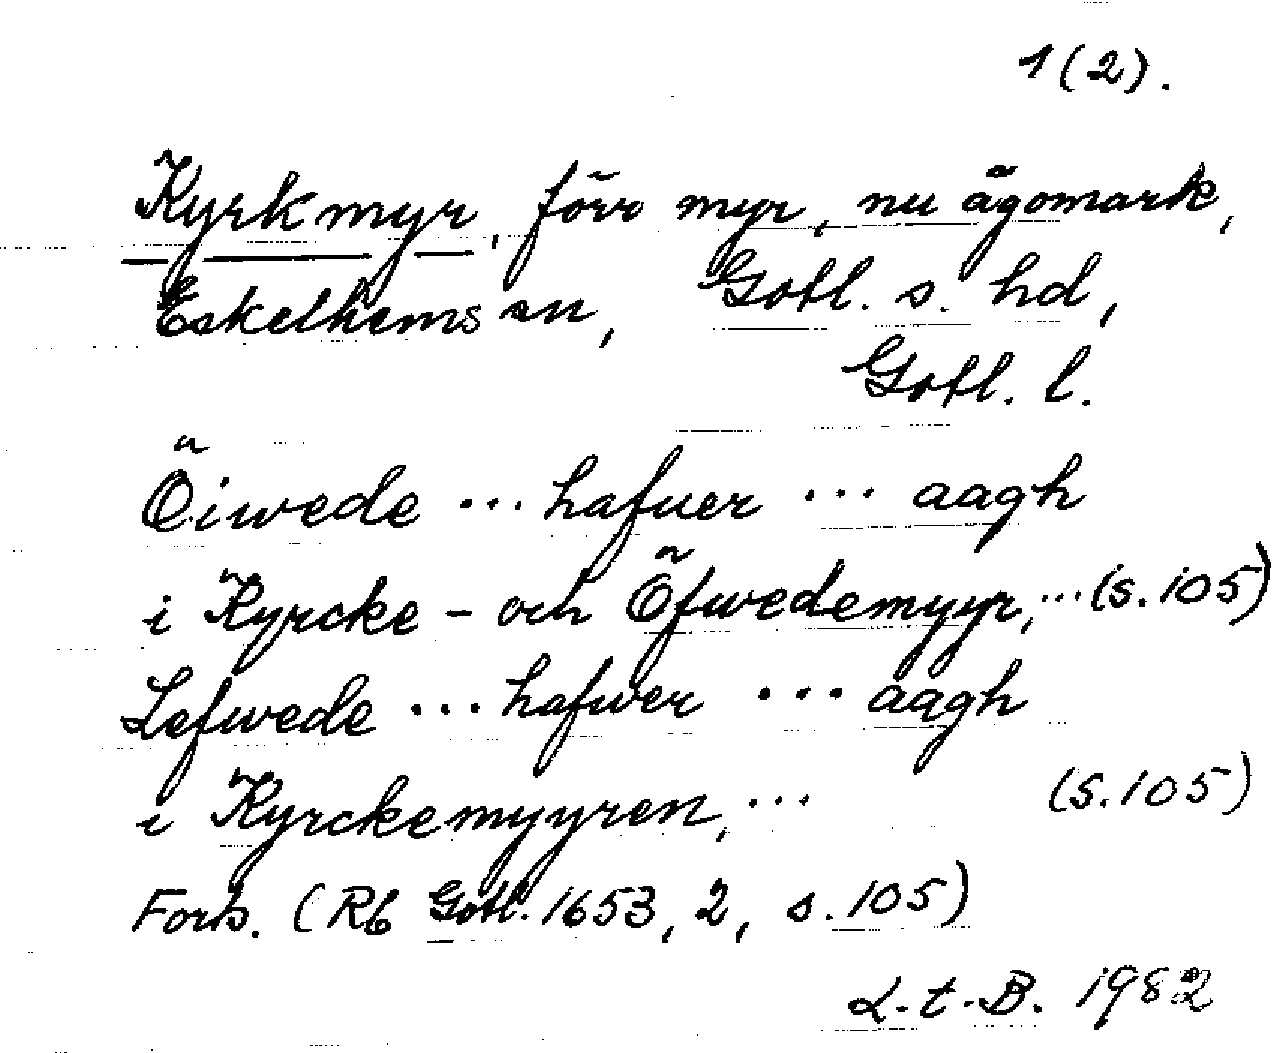 1(2).
Kyrkmyr, förr myr, nu ägomark,
Eskelhems sn, Gotl. s. hd,
Gotl. l.
Öiwede ... hafuer ... aagh
i Kyrcke- och Öfwedemyyr, ... (s. 105)
Lefwede ... hafwer ... aagh
i Kyrckemyyren, ... (s. 105)
Forts. (Rb Gotl. 1653, 2, s. 105)
L.t.B. 1982